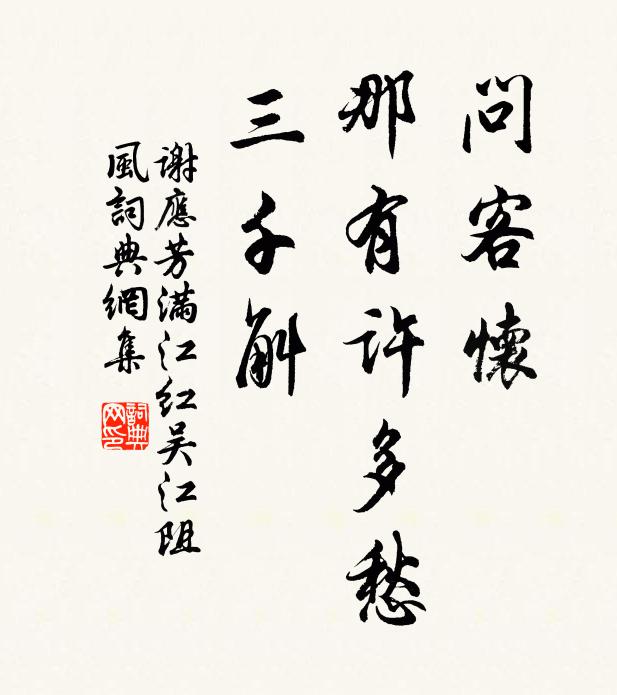 問客懷
那有許多愁
三千斛
謝應芳滿江红吴江阻
風詞典網集
詞典
网印